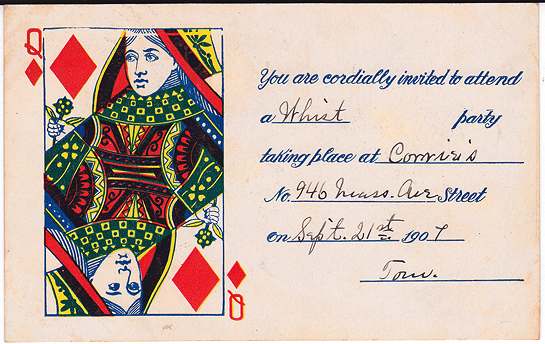 Q
You are cordially invited to attend
a Whist party
taking place at Corrie's
No. 946 Mass. Ave Street
on Sept. 21st 1907
Tom.
Q